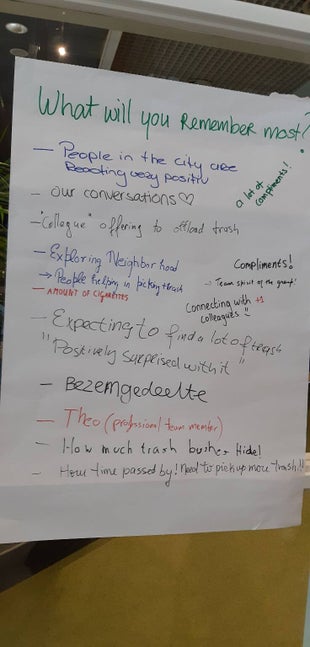 What will you Remember most?
— People in the city are
Reacting very positiv
a lot of
compliments!
— our conversations♡
— "Collegue" offering to offload trash
— Exploring Neighborhood
→ People helping in picking trash
— AMOUNT OF CIGARETTES
Compliments!
→ Team spirit of the group!
Connecting with +1
colleagues
— Expecting to find a lot of trash
"Positively surprised with it"
— Bezemgedeelte
— Theo (professional team member)
— How much trash bushes Hide!
— How time passed by! Need to pick up more trash!!